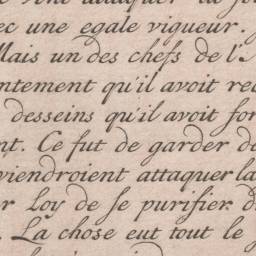 ec une egale vigueur.
Mais un des chefs de l'
ntement qu'il avoit re
desseins qu'il avoit for
nt. Ce fut de garder de
viendroient attaquer la
r Loy de se purifier. d
. La chose eut tout le